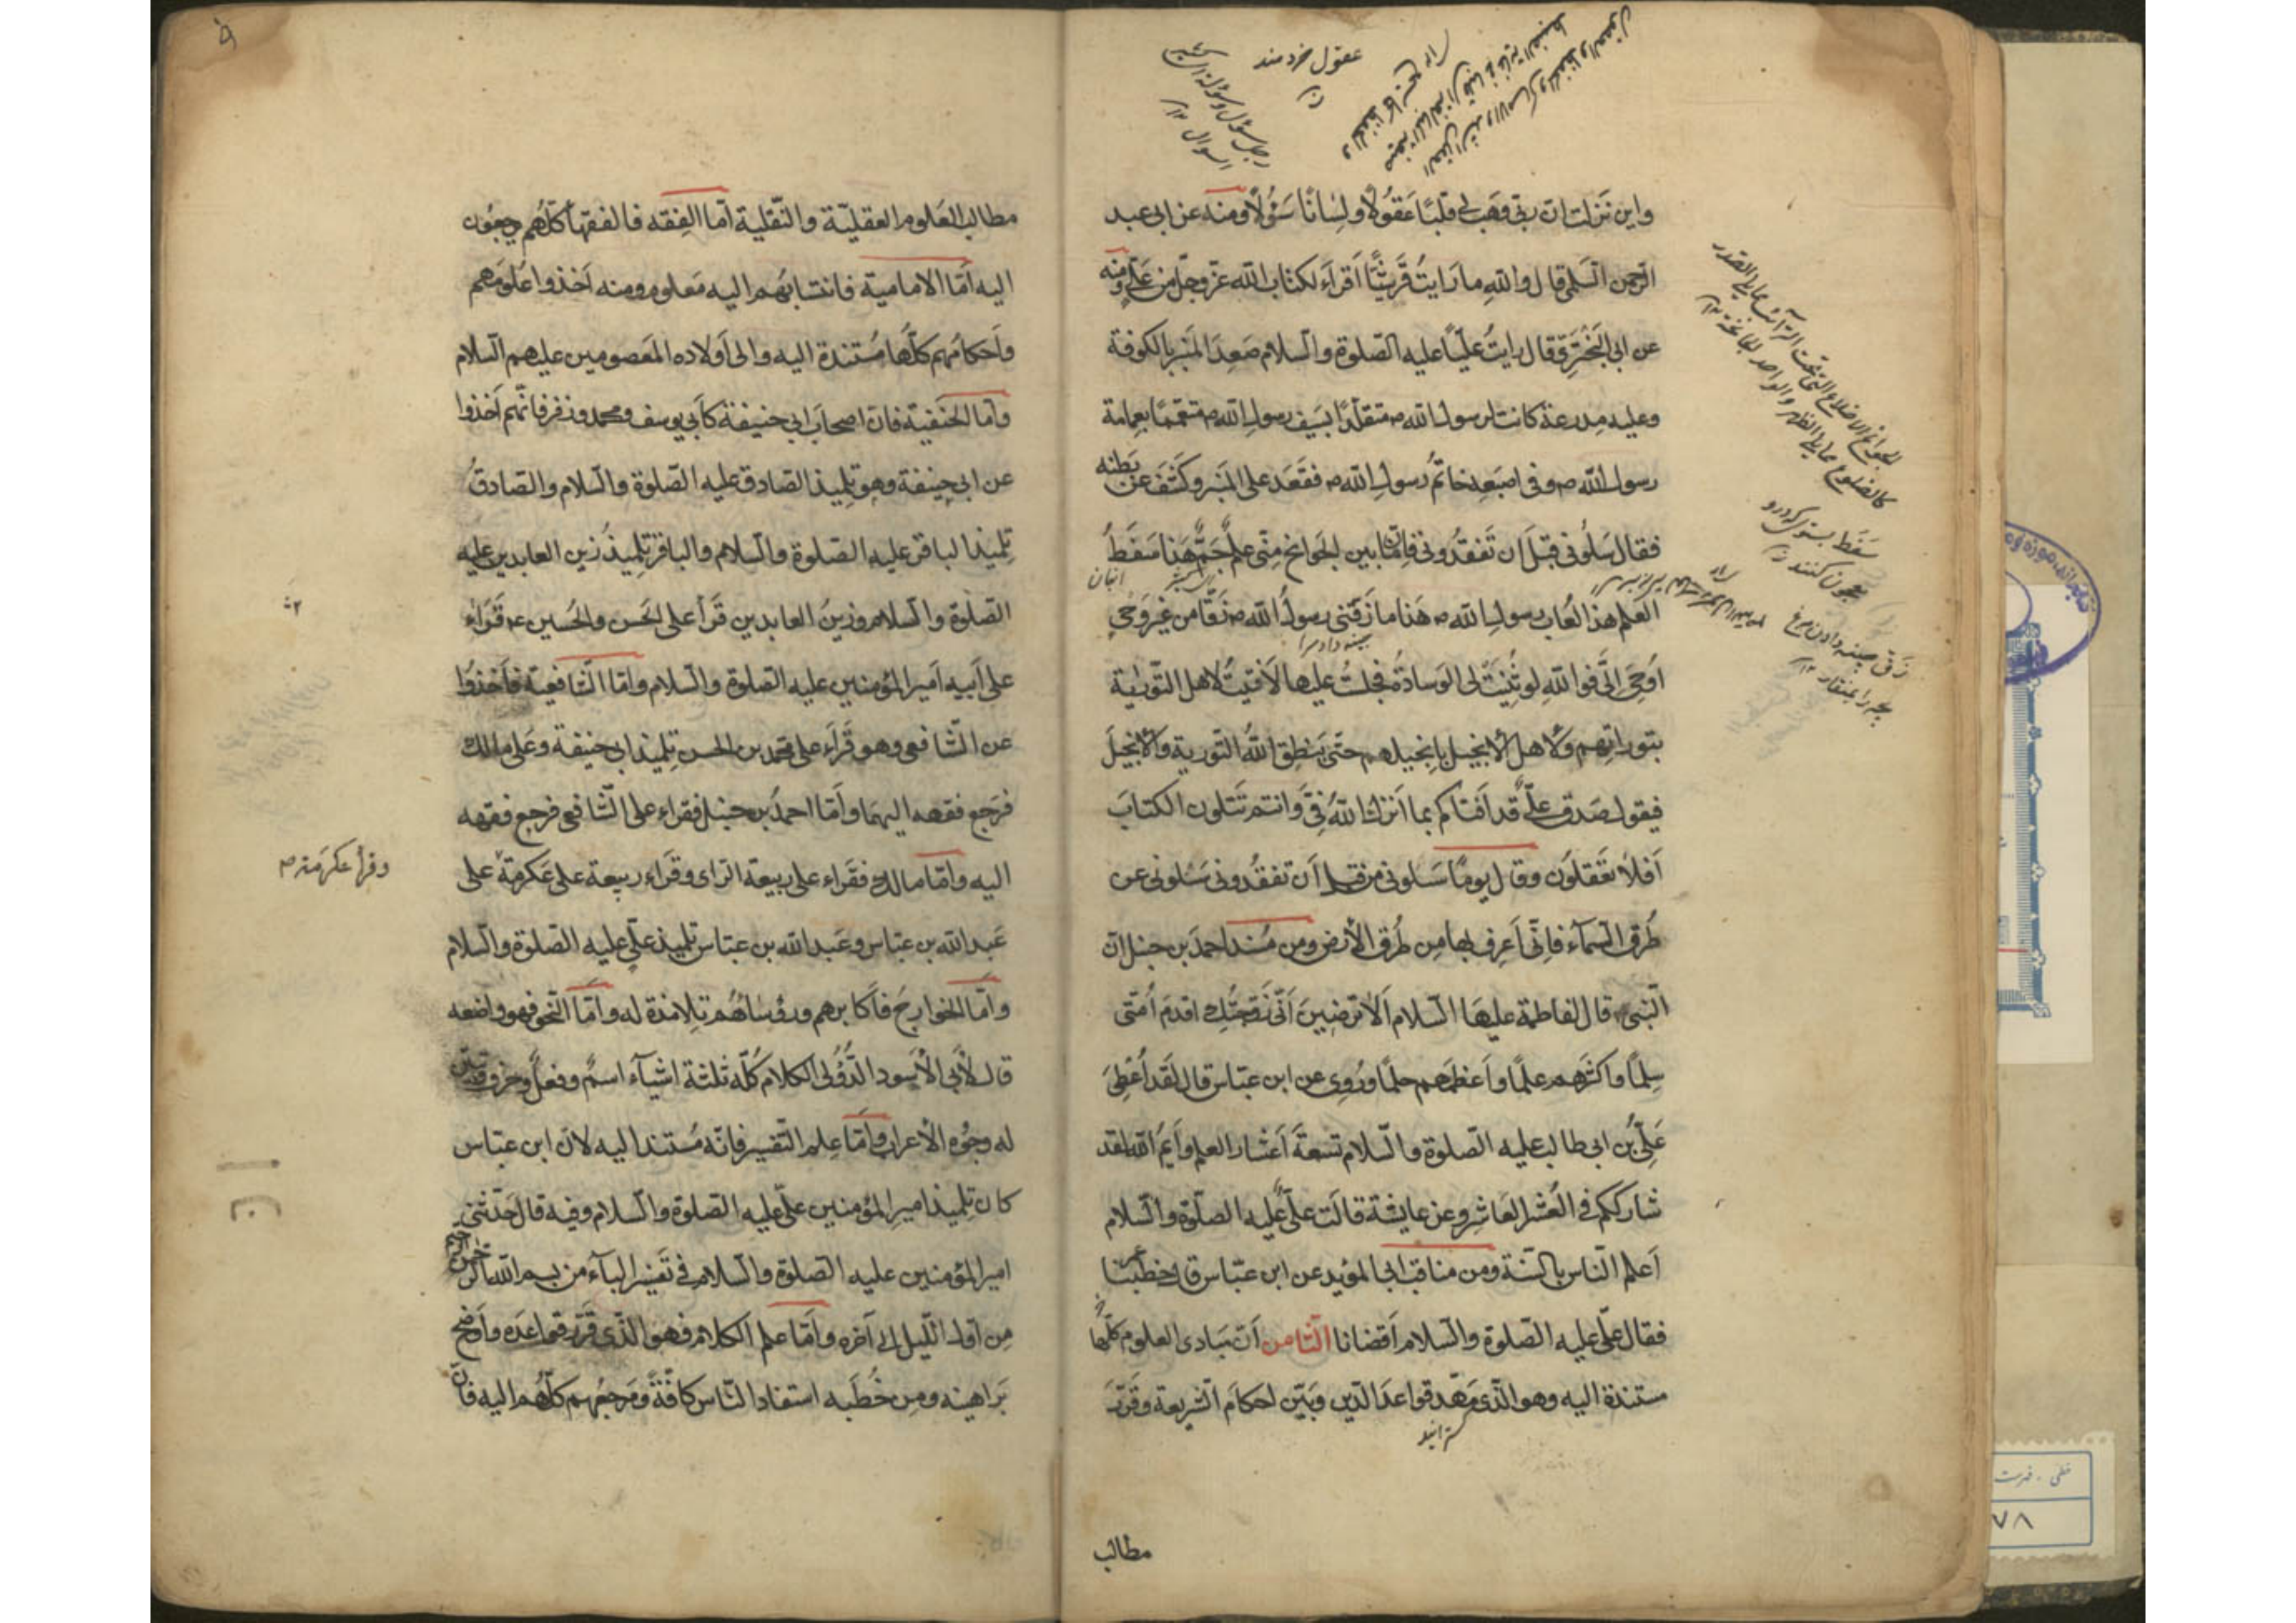 عقول خردمند
رجل سؤل وسؤلة اى كثير
السؤال ١٢
واين نزلت ان ربى وهب لى قلبًا عَقوُلًا ولسٰانًا سَئُولًا ومنه عن ابى عبد
الرحمن السّلمى قال والله ما رَايتُ قُرَيشًا اَقرَأَ لكتاب الله عزّ وجلّ من عَلىٍّ ومنه
عن ابى البَخترِىّ قال رايتُ عليًّا عليه الصّلوة والسّلام صَعِدَ المنبر بالكوفة
وعليه مِدرعة كانت لرسول الله ص متقلّدًا بسَيف رسول الله ص متعمّمًا بعِمامة
رسول الله ص وفى اصبَعه خاتمُ رسول الله ص فقَعَد على المنبر وكَشَفَ عن بَطنه
فقال سَلوُنى قبلَ ان تَفقدُونى فانّما بين الجَوانح مِنّى علمٌ جَمٌّ هَذا سَفَطُ
العلم هذا لُعاب رسول الله ص هَذا ما زَقّنى رسولُ الله ص زَقًّا من غير وَحىٍ
اوُحِىَ الىَّ فوا اللهِ لو ثُنِيَتْ لى الوَسادةُ فجلستُ عليها لَافتَيتُ لاهل التّورٰية
بتوراتِهم ولاهل الانجيل بانجيلهم حتى يَنطق اللهُ التّورية والانجيلَ
فيقول صَدق علىٌّ قد اَفتاكم بما اَنزلَ اللهُ فىَّ وانتم تَتلون الكتابَ
اَفلٰا تعَقلوُن وقال يومًا سَلونى من قبل اَن تفقُدونى سَلونى عن
طُرق السّمآء فانّى اَعرف بها مِن طُرق الأرض ومن مُسند احمدَ بن حنبل انّ
النّبىّ ص قال لفاطمة عليهَا السّلام اَلٰا ترضينَ اَنّى زَوّجتُكِ اقدمَ اُمّتى
سِلمًا واكثرَهم علمًا واَعظمَهم حلمًا ورُوى عن ابن عبّاس قال لقَد اُعْطِىَ
عَلىّ بنُ ابى طالب عليه الصّلوة والسّلام تسعةَ اَعشار العلم واَيمُ الله لقد
شارككم فى العُشر العَاشِر وعن عايشة قالَت علىٌّ عليه الصلّوة والسّلام
اَعلم النّاس بالسّنة ومن مناقب ابى المؤيد عن ابن عبّاس قال خطبنا عمر
فقال علىّ عليه الصّلوة والسّلام اَقضانا الثّامن اَنّ مَبادى العلوم كلّها
مستندة اليه وهو الّذى مَهّد قواعدَ الدّين وبَيّن احكامَ الشّريعة وقَرّرَ
مطالب
مطالب العَلوم العقليّة والنّقلية اَمّا الفِقه فالفقهآ كلُّهم يرجعُون
اليه اَمّا الامامية فانتسابهُم اليه مَعلوم ومنه اَخذوا عُلومَهم
واَحكامُهم كلّها مُستندة اليه والى اَولاده المعَصومين عليهم السّلام
وامّا الحَنَفيّة فان اصحابَ ابى حنيفة كاَبى يوسف ومحمد وزفر فانّهم اَخذوا
عن ابى حنيفة وهو تِلميذ الصّادق عليه الصّلوة والسّلام والصّادقُ
تِلميذ الباقر عليه الصّلوة والسّلام والباقرُ تِلميذُ زين العابدين عليه
الصّلوة والسّلام وزينُ العابدين قرَأ على الحَسن والحُسين ع وقَرَاٰء
على اَبيه اَمير المؤمنين عليه الصّلوة والسّلام وامّا الشّافعيّة فاَخذوُا
عن الشّافعى وهو قَرَاَء على محمد بن الحسن تِلميذ ابى حنيفة وعَلى مالك
فرجَع فقهه اليهمَا واَمّا احمدُ بن حنبل فقراء على الشّافعى فرجع فقهه
اليه وامّا مالك فقَراء على ربيعة الرّاى وقَراء ربيعة على عَكرمة على
وقرأ عكرمة ص
عَبد الله بن عبّاس وعَبد الله بن عبّاس تلميذ علىّ عليه الصّلوة والسّلام
وامّا الخوارجَ فاَكابرهم ورؤساؤهُم تلامذة له واَمّا النّحو فهو واضعه
قال لأَبى الأَسود الدُّؤُلى الكلام كُلّه ثلثة اشيآء اسمٌ وفعلٌ وحرفٌ وبيّن
له وجُوه الأعراب واَمّا علم التّفسير فانّه مُستند اليه لانّ ابن عبّاس
كان تِلميذ امير المؤمنين علىّ عليه الصّلوة والسّلام وفيه قال حَدّثنى
امير المؤمنين عليه الصّلوة والسّلام فى تَفسير البآء من بسم الله الرّحمن الرّحيم
مِن اَول اللّيل الى آخره واَمّا علم الكلام فهو الّذى قَرّر قواعدَه واَوضح
بَراهينه ومِن خُطَبه استفاد النّاس كافّةً ومَرجعُهم كلُّهم اليه فانّ